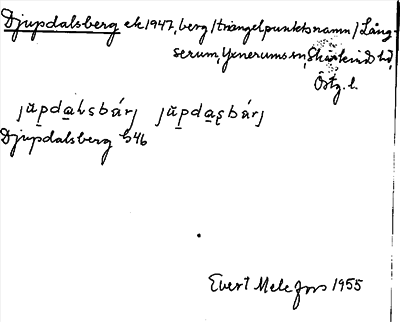 Djupdalsberg ek 1947, berg /triangelpunktsnamn/ Lång-
serum, Yxnerums sn, Skärkinds hd,
Östg. l.
jup̠da̠lsbárj jup̠da̠sbárj
Djupdalsberg G46
Evert Melefors 1955